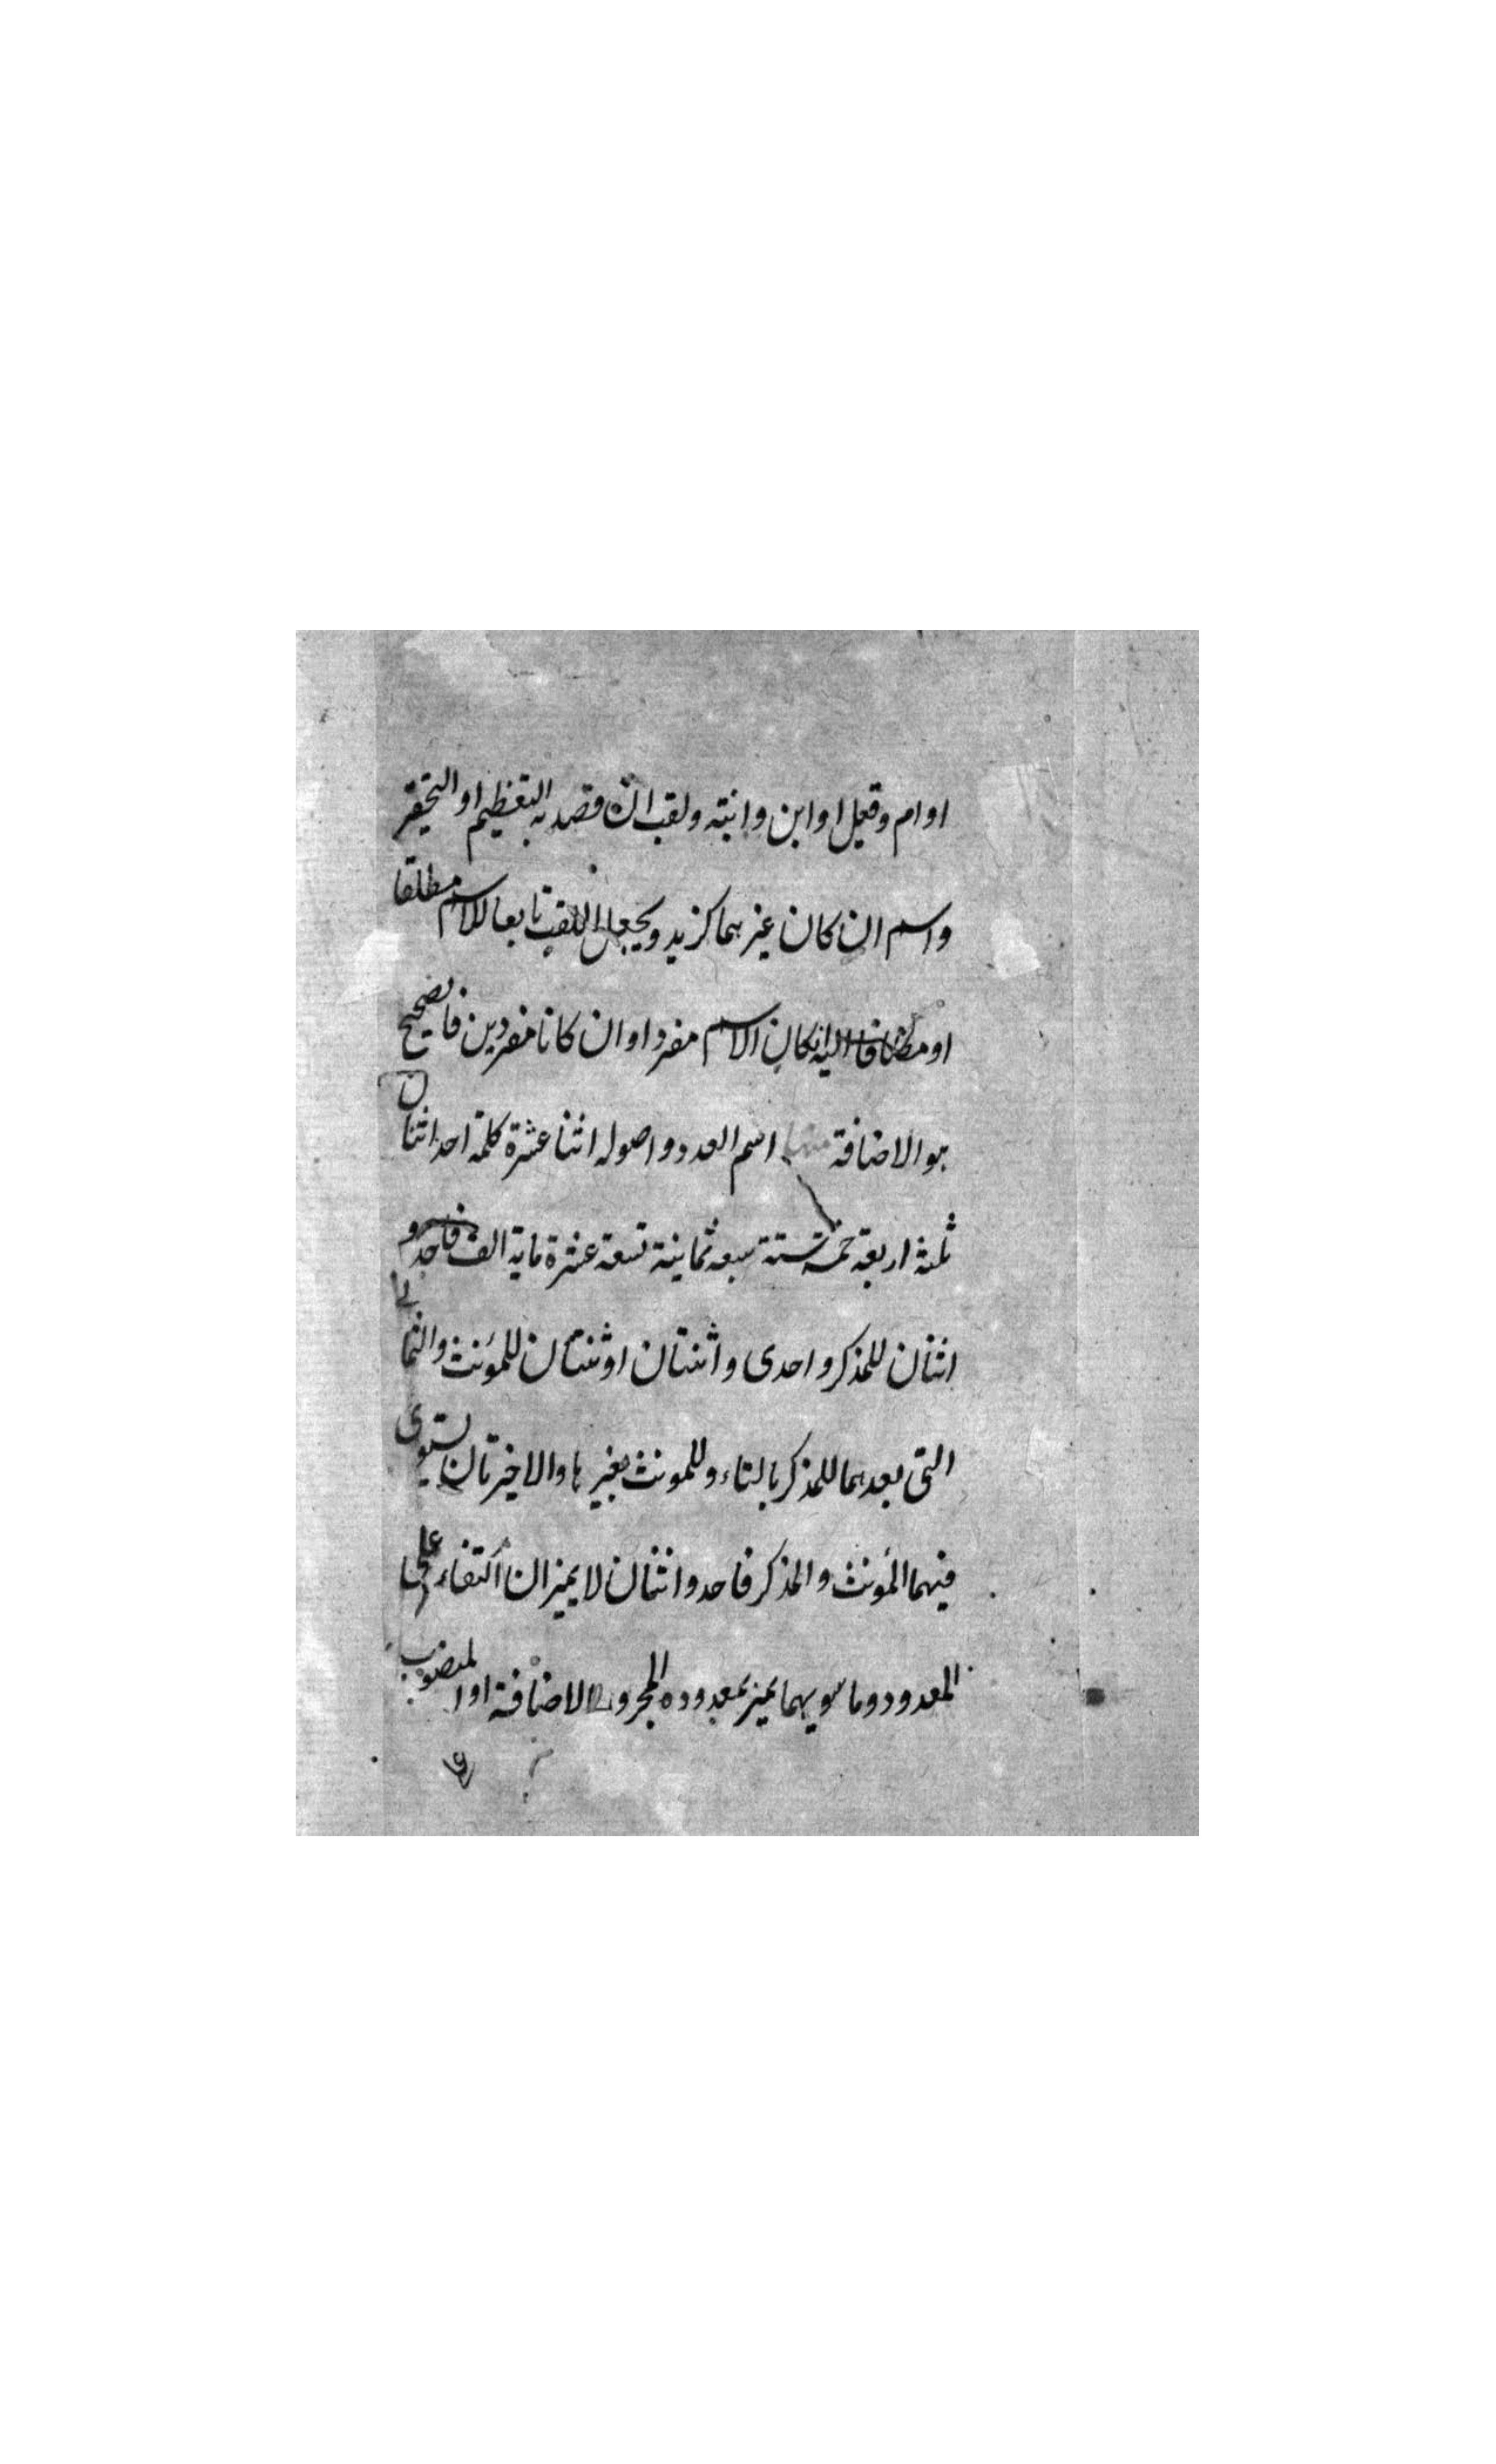 او ام وقيل او ابن وابنته ولقب ان قصد به التعظيم او التحقير
واسم ان كان غيرهما كزيد ويجعل اللقب تابعا للاسم مطلقا
او مضافا اليه انكان الاسم مفردا وان كانا مفردين فالصحيح
هو الاضافة منها اسم العدد واصوله اثنا عشرة كلمة احد اثنان
ثلثة اربعة خمسة ستة سبعه ثمانية تسعة عشرة ماية الف فاحد و
اثنان للمذكر واحدى واثنتان او ثنتان للمؤنث والثمانى
التى بعدهما للمذكر بالتاء وللمونث بغيرها والاخيرتان يستوى
فيهما المؤنث والمذكر فاحد واثنان لا يميزان اكتفاء
المعدود وما سويهما يميز بمعدوده المجرور بالاضافة او المنصوب